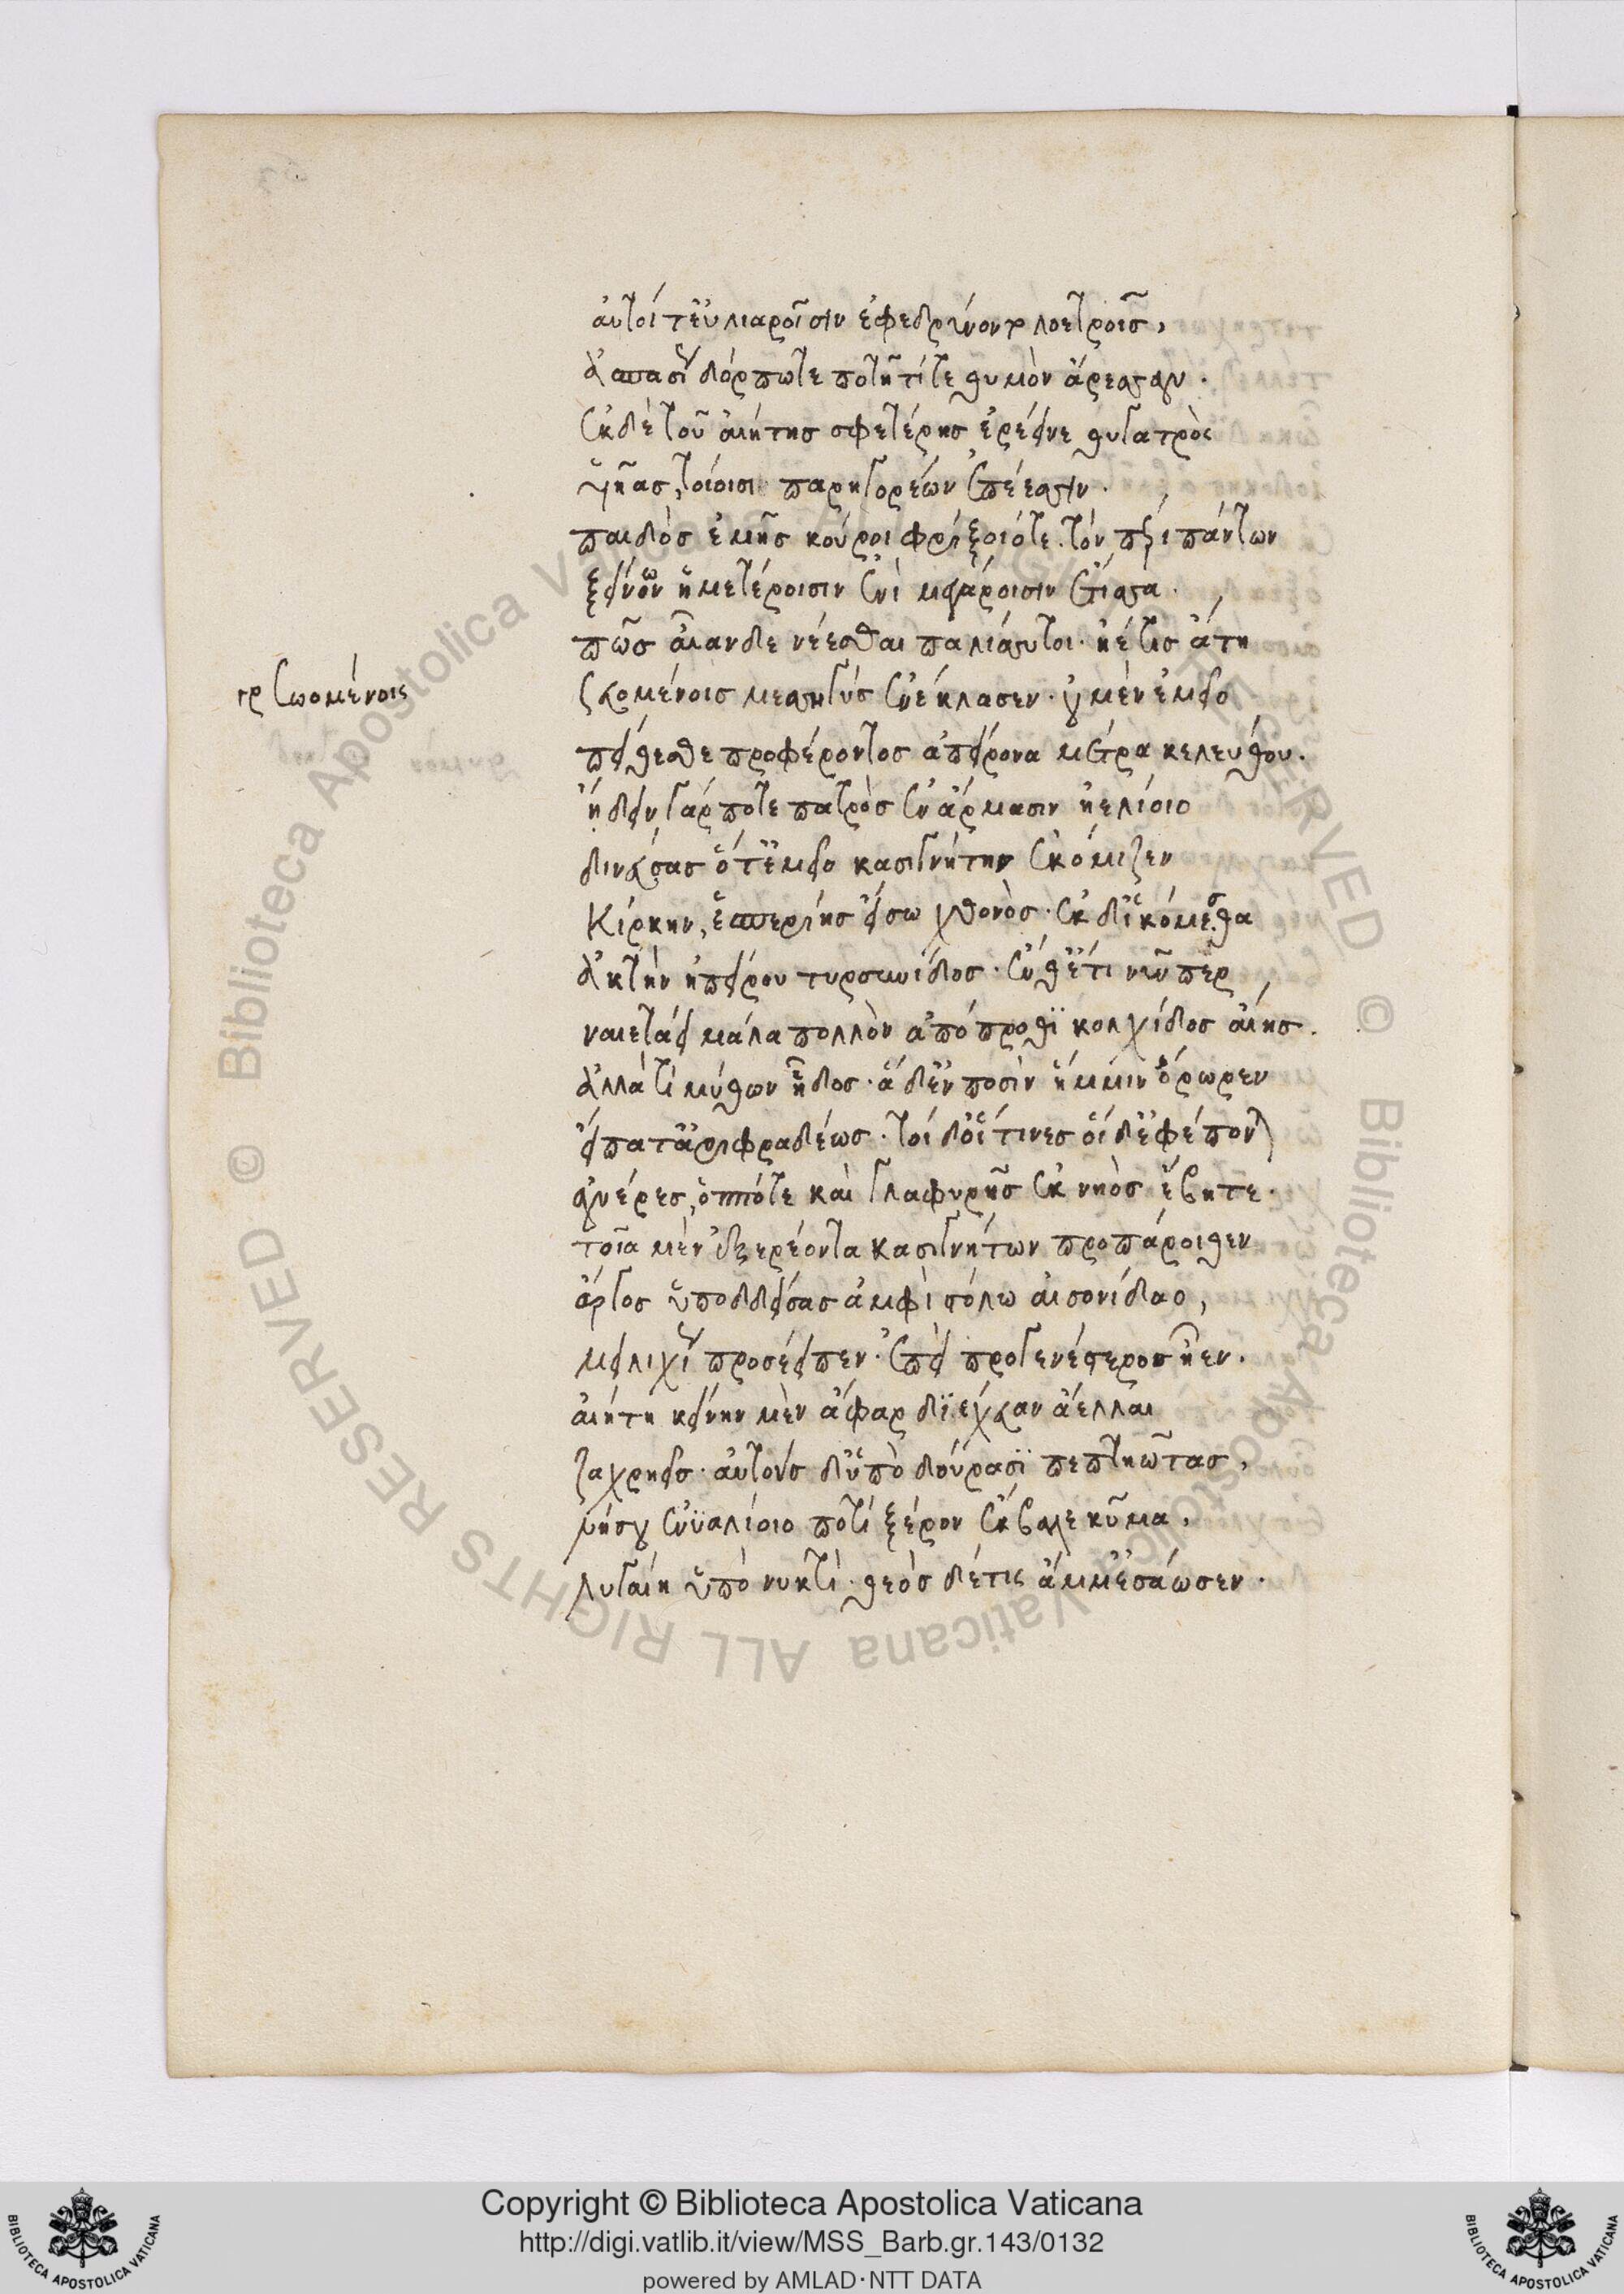 αὐτοί τ' εὐλιαροῖσιν ἐφεδρύνοντο λοετροῖς,
ἀσπασίως δόρπωτε ποτῆτί τε θυμὸν ἄρεσσαν.
ἐκ δὲ τοῦ αἰήτης σφετέρης ἐρέεινε θυγατρὸς
υἱῆας, τοίοισι παρηγορέων ἐπέεσσιν.
παιδὸς ἐμῆς κοῦροι φρίξοιό τε. τὸν περὶ πάντων
ξείνων ἡμετέροισιν ἐνὶ μεγάροισιν ἔτισσα.
πῶς αἶανδε νέεσθαι παλίσσυτοι. ἠέ τις ἄτη
γρ σωομένοις
ζευομένοις μεσσηγύς ἐνέκλασεν. οὐ μὲν ἐμεῖο
πείθεσθε προφέροντος ἀπείρονα μέτρα κελεύθου.
ᾔδειν γάρ ποτε πατρὸς ἐν ἅρμασιν ἠελίοιο
δινεύσας ὅτ' ἐμεῖο κασιγνήτην ἐκόμιζεν
Κίρκην, ἑσπερίης εἴσω χθονὸς. ἐκ δ' ἱκόμεσθα
ἀκτὴν ἠπείρου τυρσηνίδος. ἔνθ' ἔτι νῦν πὲρ
ναιετάει μάλα πολλὸν ἀπόπροθϊ κολχίδος αἴης.
ἀλλὰ τί μύθων ἦδος. ἅ δ' ἐν ποσὶν ἥμμιν ὄρωρεν
εἴπατ' ἀριφραδέως. τοί δ' οἵ τινες οἵδ' ἐφέπονται
ἀνέρες, ὁππότε καὶ γλαφυρῆς ἐκ νηὸς ἔβητε.
τοῖα μὲν ἐξερέοντα κασιγνήτων προπάροιθεν
ἄργος ὑποδδείσας ἀμφὶ στόλω αἰσονίδαο,
μειλιχίως προσέειπεν. ἐπεὶ προγενέστερος ἦεν.
αἰήτη κείνην μὲν ἄφαρ διέχευαν ἄελλαι
ζαχρηεῖς. αὐτοὺς δ' ὑπὸ δούρασϊ πεπτηῶτας,
νήσου ἐνϋαλίοιο ποτὶ ξέρον ἔκβαλε κῦμα,
λυγαίη ὑπὸ νυκτὶ. θεὸς δέτις ἄμμ' ἐσάωσεν.
Copyright © Biblioteca Apostolica Vaticana
http://digi.vatlib.it/view/MSS_Barb.gr.143/0132
powered by AMLAD·NTT DATA